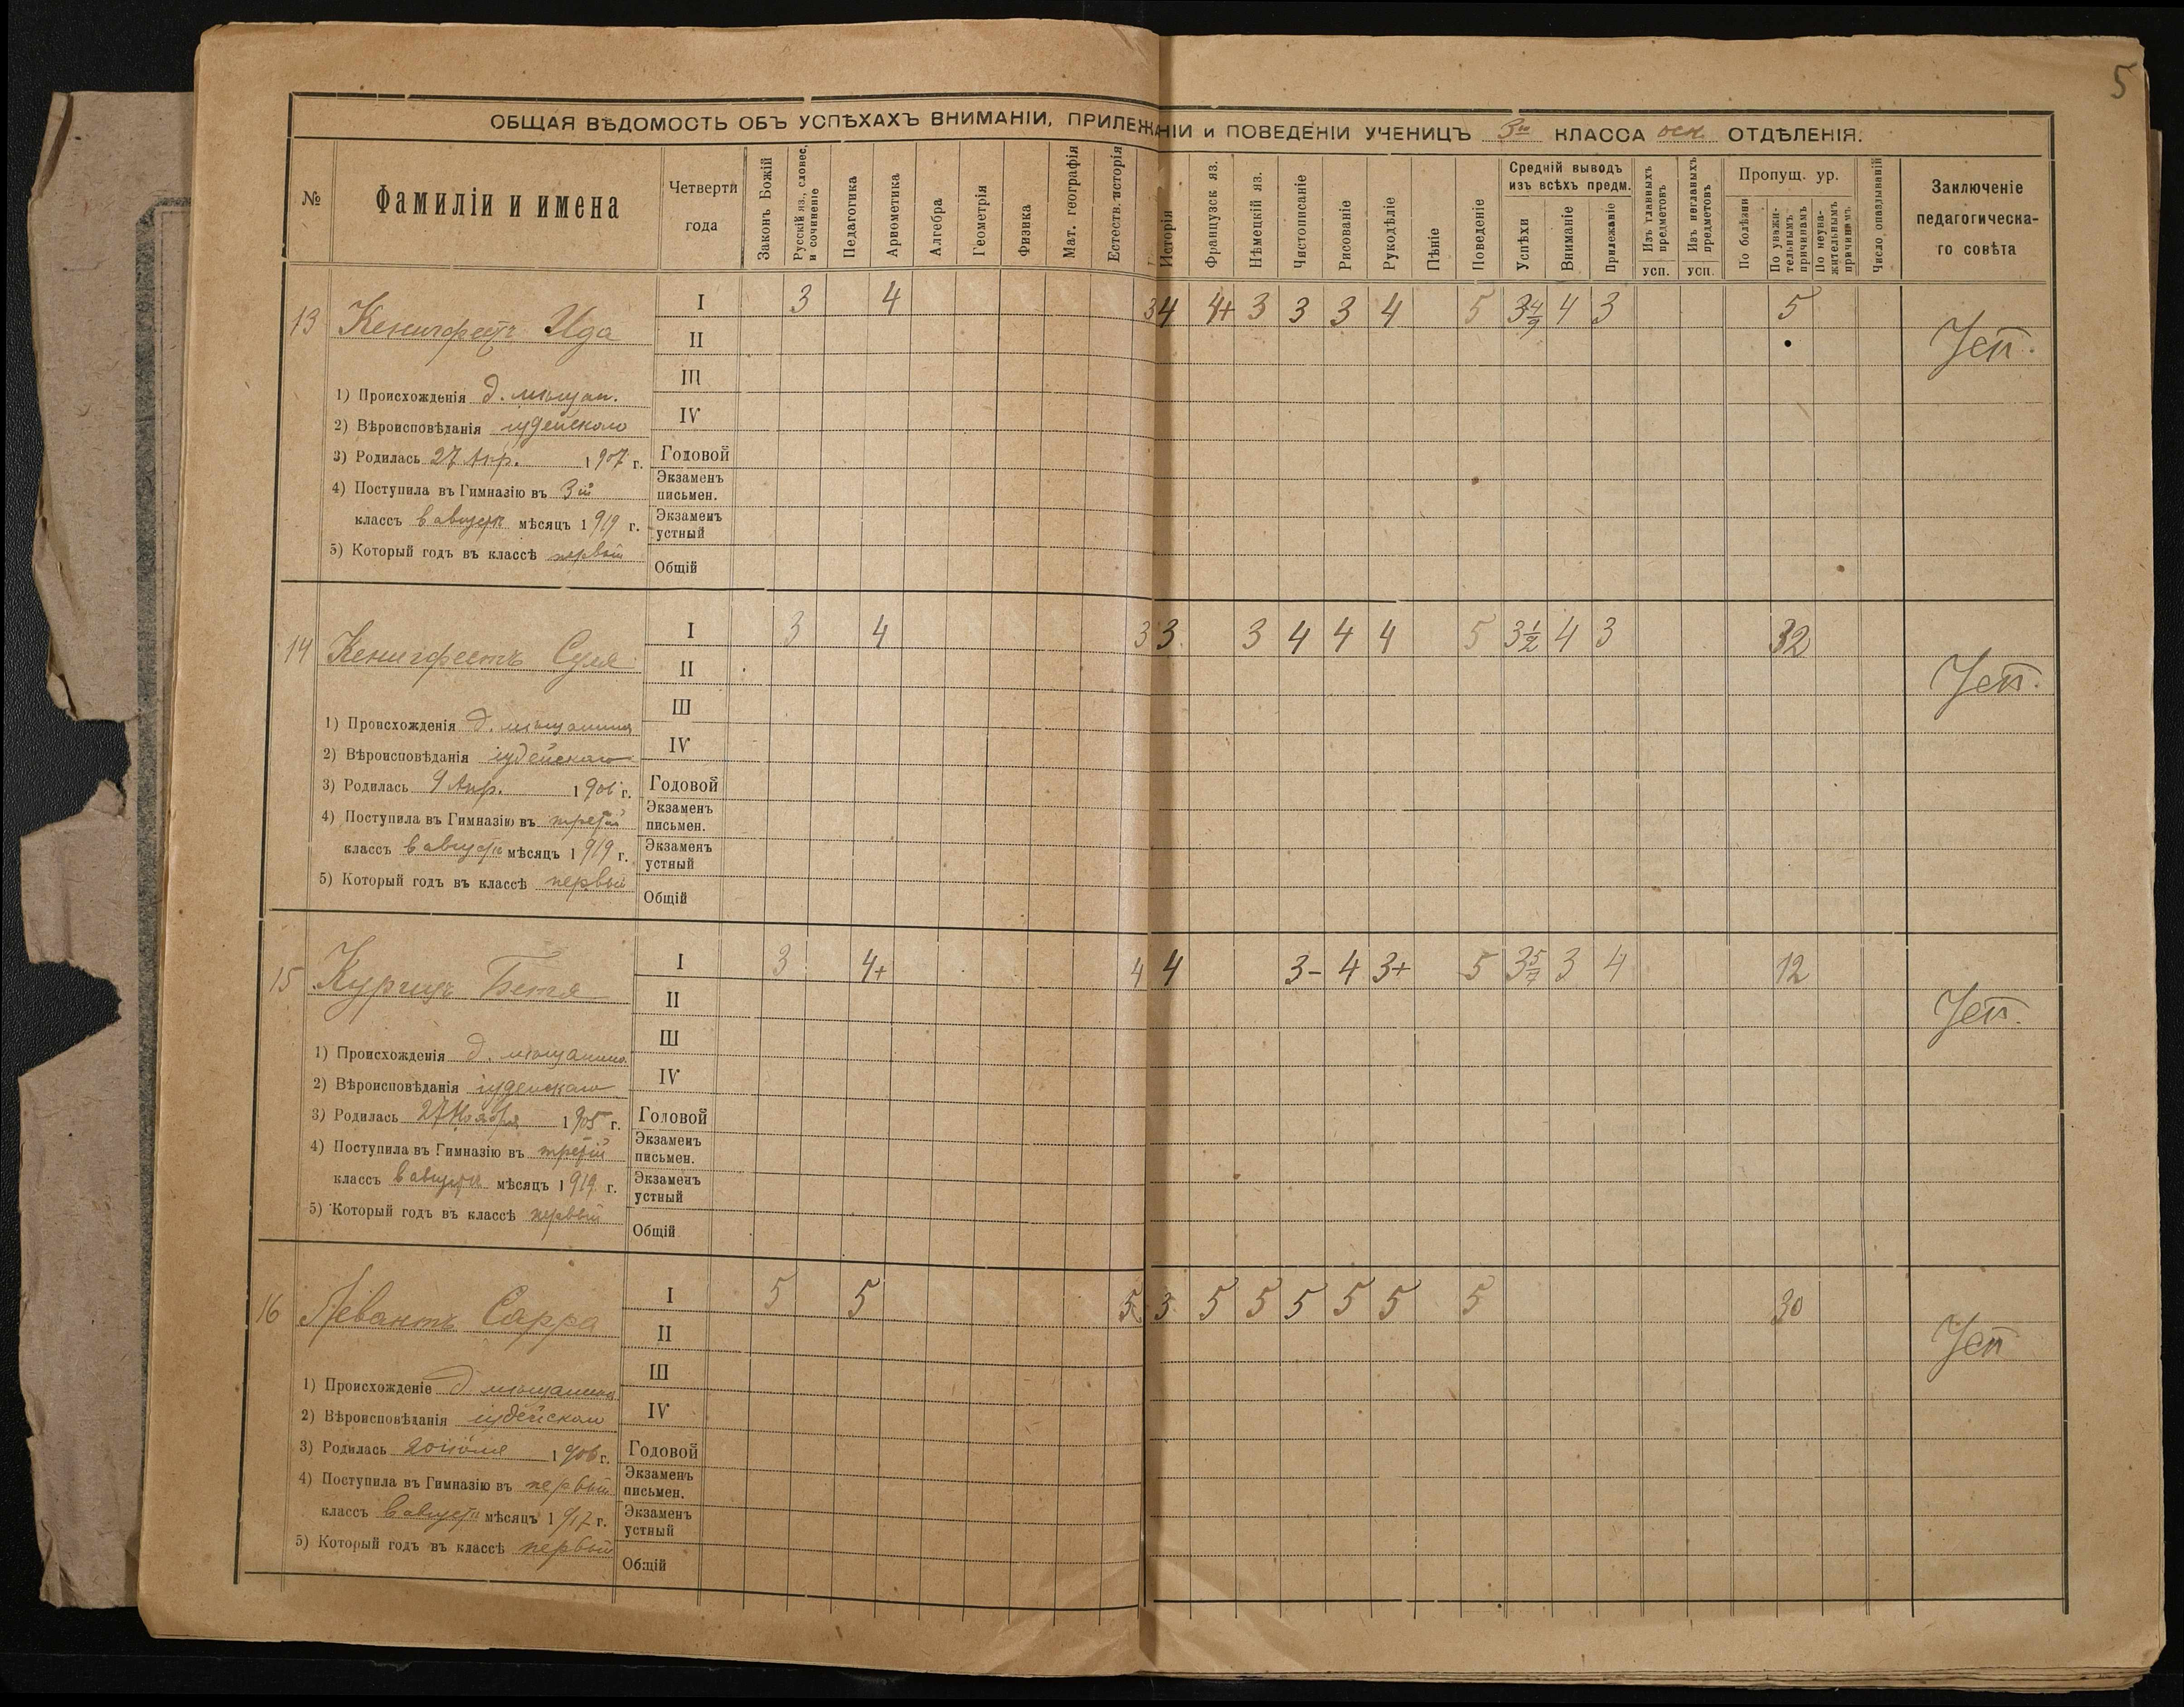 5
ОБЩАЯ ВѢДОМОСТЬ ОБЪ УСПѢХАХЪ ВНИМАНІИ, ПРИЛЕЖАНІИ и ПОВЕДЕНІИ УЧЕНИЦЪ 3го КЛАССА осн. ОТДѢЛЕНІЯ.
№
Фамиліи и имена
Четверти года
Законъ Божій
Русскій яз., словес. и сочиненіе
Педагогика
Ариѳметика
Алгебра
Геометрія
Физика
Мат. географія
Естеств. исторія
Исторія
Французск яз.
Нѣмецкій яз.
Чистописаніе
Рисованіе
Рукодѣліе
Пѣніе
Поведеніе
Средній выводъ изъ всѣхъ предм.
Успѣхи
Вниманіе
Прилежаніе
Изъ главныхъ предметовъ
УСП.
Изъ неглавныхъ предметовъ
УСП.
Пропущ. ур.
По болѣзни
По уважительнымъ причинамъ
По неуважительнымъ причинамъ
Число опаздываній
Заключеніе педагогическаго совѣта
13 Кенигфестъ Ида
I 3 4 3 4 4+ 3 3 3 4 5 3 4/9 4 3 5
Усп.
II
III
1) Происхожденія д. мѣщан.
IV
2) Вѣроисповѣданія іудейскаго
3) Родилась 27 Апр. 1907 г.
Годовой
4) Поступила въ Гимназію въ 3ій
Экзаменъ письмен.
классъ в августѣ мѣсяцъ 1919 г.
Экзаменъ устный
5) Который годъ въ классѣ первый
Общій
14 Кенигфестъ
I 3 4 3 3 3 4 4 4 5 3 1/2 4 3 32
Усп.
II
III
1) Происхожденія д. мѣщанина
IV
2) Вѣроисповѣданія іудейскаго
3) Родилась 9 Апр. 1906 г.
Годовой
4) Поступила въ Гимназію въ третій
Экзаменъ письмен.
классъ в августѣ мѣсяцъ 1919 г.
Экзаменъ устный
5) Который годъ въ классѣ первый
Общій
15 Бетя
I 3 4+ 4 4 3- 4 3+ 5 3 5/7 3 4 12
Усп.
II
III
1) Происхожденія д. мѣщанина
IV
2) Вѣроисповѣданія іудейскаго
3) Родилась 27 Ноября 1905 г.
Годовой
4) Поступила въ Гимназію въ третій
Экзаменъ письмен.
классъ в августѣ мѣсяцъ 1919 г.
Экзаменъ устный
5) Который годъ въ классѣ первый
Общій
16 Левантъ Сарра
I 5 5 5 3 5 5 5 5 5 5 30
Усп
II
III
1) Происхожденіе д мѣщанина
IV
2) Вѣроисповѣданія іудейскаго
3) Родилась 1906 г.
Годовой
4) Поступила въ Гимназію въ первый
Экзаменъ письмен.
классъ в августѣ мѣсяцъ 1917 г.
Экзаменъ устный
5) Который годъ въ классѣ первый
Общій